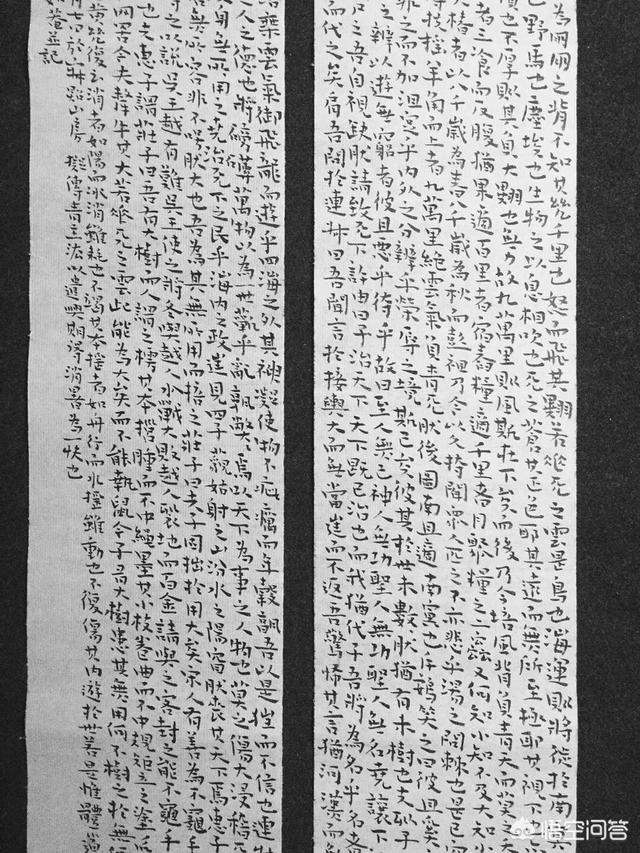 為鵬鵬之背不知其幾千里也怒而飛其翼若垂天之雲是鳥也海運則將徙於南
也野馬也塵埃也生物之以息相吹也天之蒼其正色耶其遠而無所至極耶其視下也
也不厚則其負大翼也無力故九萬里則風斯在下矣而後乃今培風背負青天而莫之夭
者三飡而反腹猶果適百里者宿舂糧適千里者月聚糧之二蟲又何知小知不及大知小
大椿者以八千歲為春八千歲為秋而彭祖乃今以久特聞衆人匹之不亦悲乎湯之問棘也是已
扶搖羊角而上者九萬里絕雲氣負青天然後圖南且適南冥也斥鴳笑之曰彼且奚
之而不加沮定乎內外之分辨乎榮辱之境斯已矣彼其於世未數數然猶有未樹也夫列子
之辨以遊無窮者彼且惡乎待乎故曰至人無己神人無功聖人無名堯讓
之吾自視缺然請致天下許由曰子治天下天下既已治也而我猶代子吾將為名乎名者
而代之矣肩吾問於連叔曰吾聞言於接輿大而無當往而不返吾驚怖其言猶河漢
乘雲氣御飛龍而遊乎四海之外其神凝使物不疵癘而年穀熟吾以是狂而不信也連叔
之人之德也將磅礴萬物以為一世蘄乎亂孰弊弊焉以天下為事之人物也莫之傷大浸稽天
無所用之堯治天下之民平海內之政往見四子藐姑射之山汾水之陽窅然喪其天下焉惠子
無以容非不呺然大也吾為其無用而掊之莊子曰夫子固拙於用大矣宋人有善為不龜手
之以說吳王越有難吳王使之將冬與越人水戰大敗越人裂地而百金請與之客封之能不龜手
也惠子謂莊子曰吾有大樹而人謂之樗其本擁腫而不中繩墨其小枝卷曲而不中規矩立之塗
罟今夫斄牛其大若垂天之雲此能為大矣而不能執鼠今子有大樹患其無用何不樹之於無何
云消者如陽而冰消雖耗也不竭其本搖者如舟行而水搖雖動也不傷其內遊於世若是惟體道
山房 擬傅青主法以遣興賴得消暑為一快也
並記
悟空问答